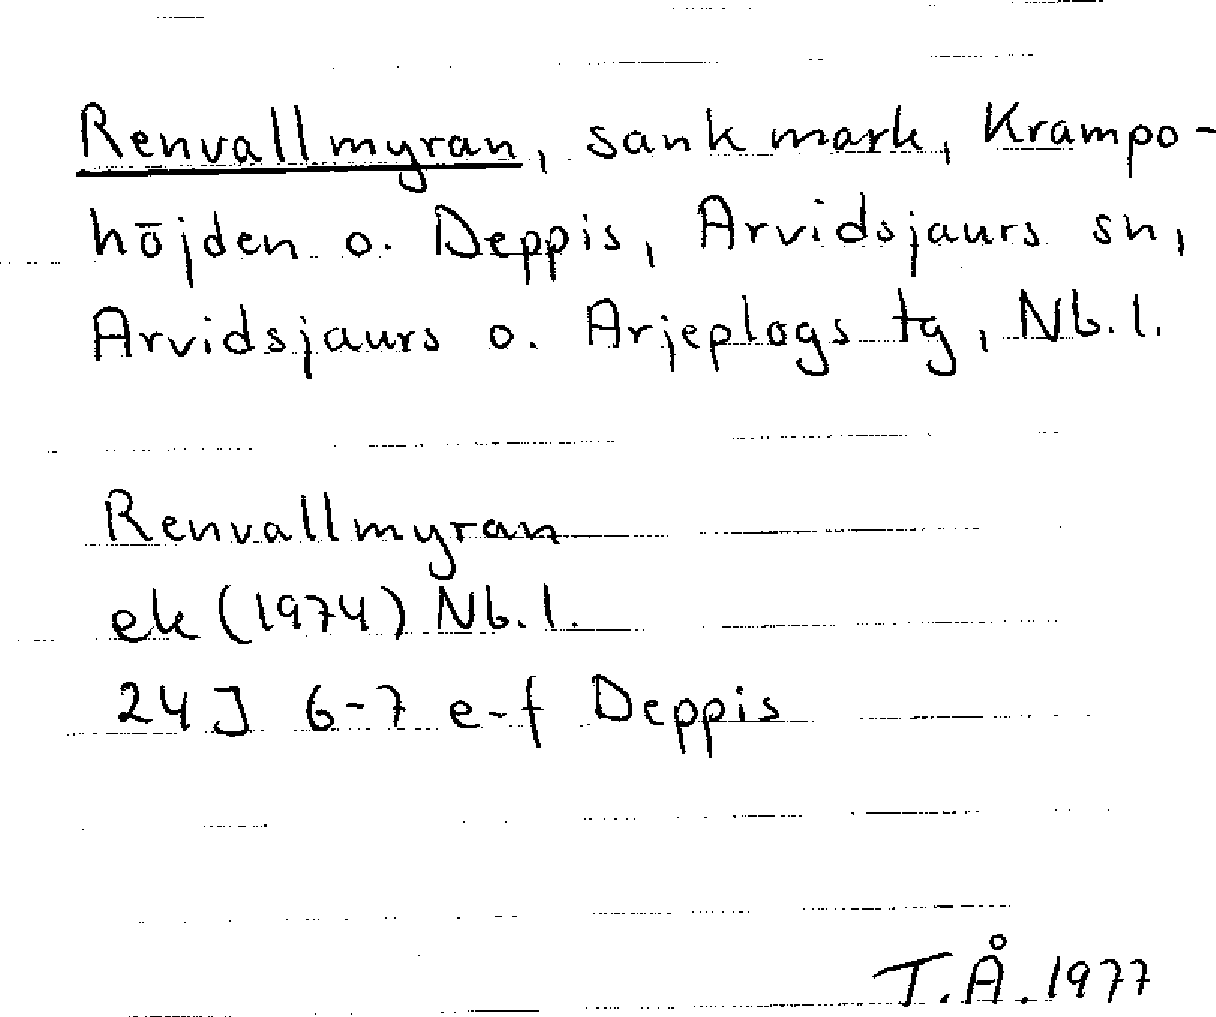 Renvallmyran, sank mark, Krampo-
höjden o. Deppis, Arvidsjaurs sn,
Arvidsjaurs o. Arjeplogs tg, Nb.l.
Renvallmyran
ek (1974) Nb.l.
24J 6-7 e-f Deppis
T.Å. 1977